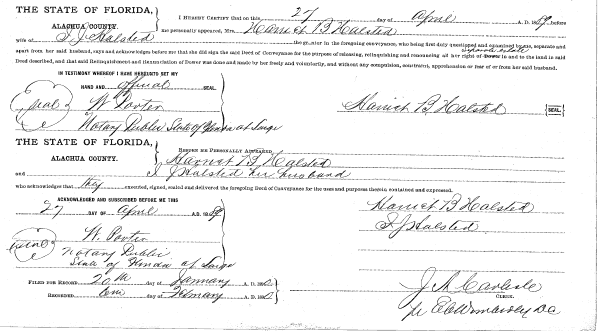 THE STATE OF FLORIDA,
ALACHUA COUNTY.
I HEREBY CERTIFY that on this 27 day of April A. D. 1889, before
me personally appeared, Mrs. Harriet B Halsted
wife of T. J. Halsted the grantor in the foregoing conveyance, who being first duly questioned and examined by me, separate and
apart from her said husband, says and acknowledges before me that she did sign the said Deed of Conveyance for the purpose of releasing, relinquishing and renouncing all her right of Dower in and to the land in said
Deed described, and that said Relinquishment and Renunciation of Dower was done and made by her freely and voluntarily, and without any compulsion, constraint, apprehension or fear of or from her said husband.
IN TESTIMONY WHEREOF I HAVE HEREUNTO SET MY
HAND AND official SEAL.
Seal W. Porter
Notary Public State of Florida at Large
Harriet B Halsted [SEAL]
THE STATE OF FLORIDA,
ALACHUA COUNTY.
BEFORE ME PERSONALLY APPEARED
Harriet B Halsted
and T J Halsted her husband
who acknowledges that they executed, signed, sealed and delivered the foregoing Deed of Conveyance for the uses and purposes therein contained and expressed.
ACKNOWLEDGED AND SUBSCRIBED BEFORE ME THIS
27 DAY OF April A. D. 1889.
Harriet B Halsted
T J Halsted
Seal W. Porter
Notary Public
State of Florida at Large
FILED FOR RECORD 20th day of January A. D. 1890
RECORDED day of February A. D. 1890
J A Carlisle
CLERK.
per D.C.